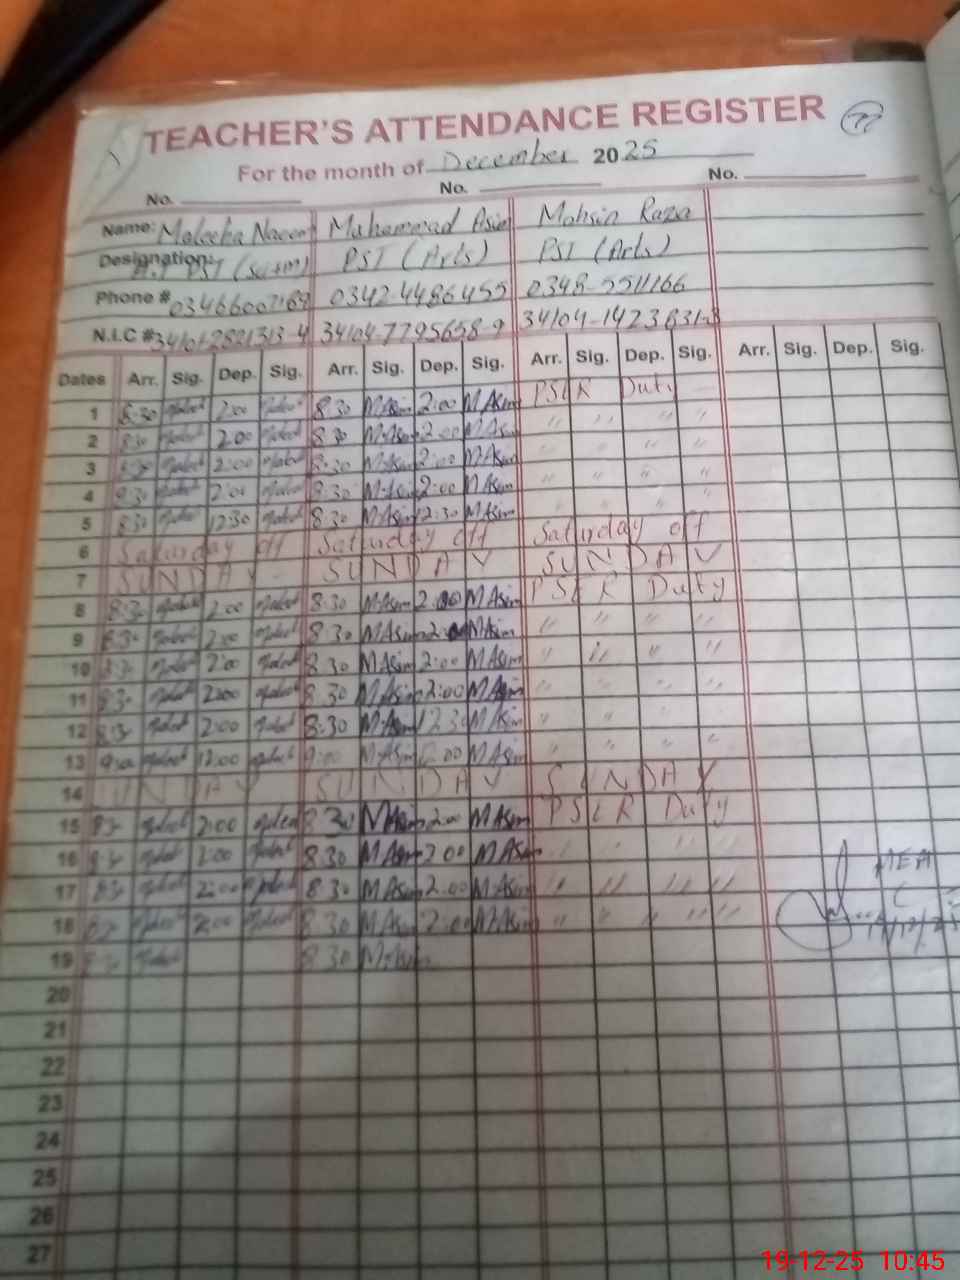 TEACHER'S ATTENDANCE REGISTER
For the month of December 2025
No. No. No.
Name: Maleeha Naeem Muhammad Asim Mohsin Raza
Designation: PST (Sci+m) PST (Arts) PST (Arts)
Phone # 03466007169 0342-4486455 0348-5511166
N.I.C # 34101-2821313-4 34104-7795658-9 34104-1423831-3
Dates Arr. Sig. Dep. Sig. Arr. Sig. Dep. Sig. Arr. Sig. Dep. Sig. Arr. Sig. Dep. Sig.
1 8:30 2:00 8:30 M Asim 2:00 M Asim PSER Duty
2 8:30 2:00 8:30 M Asim 2:00 M Asim " " " "
3 8:30 2:00 8:30 M Asim 2:00 M Asim " " " "
4 8:30 2:00 8:30 M Asim 2:00 M Asim " " " "
5 8:30 12:30 8:30 M Asim 12:30 M Asim " " " "
6 Saturday off Saturday off Saturday off
7 SUNDAY SUNDAY SUNDAY
8 8:30 2:00 8:30 M Asim 2:00 M Asim PSER Duty
9 8:30 2:00 8:30 M Asim 2:00 M Asim " " " "
10 8:30 2:00 8:30 M Asim 2:00 M Asim " " " "
11 8:30 2:00 8:30 M Asim 2:00 M Asim " " " "
12 8:30 2:00 8:30 M Asim 12:30 M Asim " " " "
13 9:00 12:00 9:00 M Asim M Asim " " " "
14 SUNDAY SUNDAY SUNDAY
15 8:30 2:00 8:30 M Asim 2:00 M Asim PSER Duty
16 8:30 2:00 8:30 M Asim 2:00 M Asim " " " "
MEA
17 8:30 2:00 8:30 M Asim 2:00 M Asim " " " "
18 8:30 2:00 8:30 M Asim 2:00 M Asim " " " "
19 8:30 8:30 M Asim
20
21
22
23
24
25
26
27
19-12-25 10:45